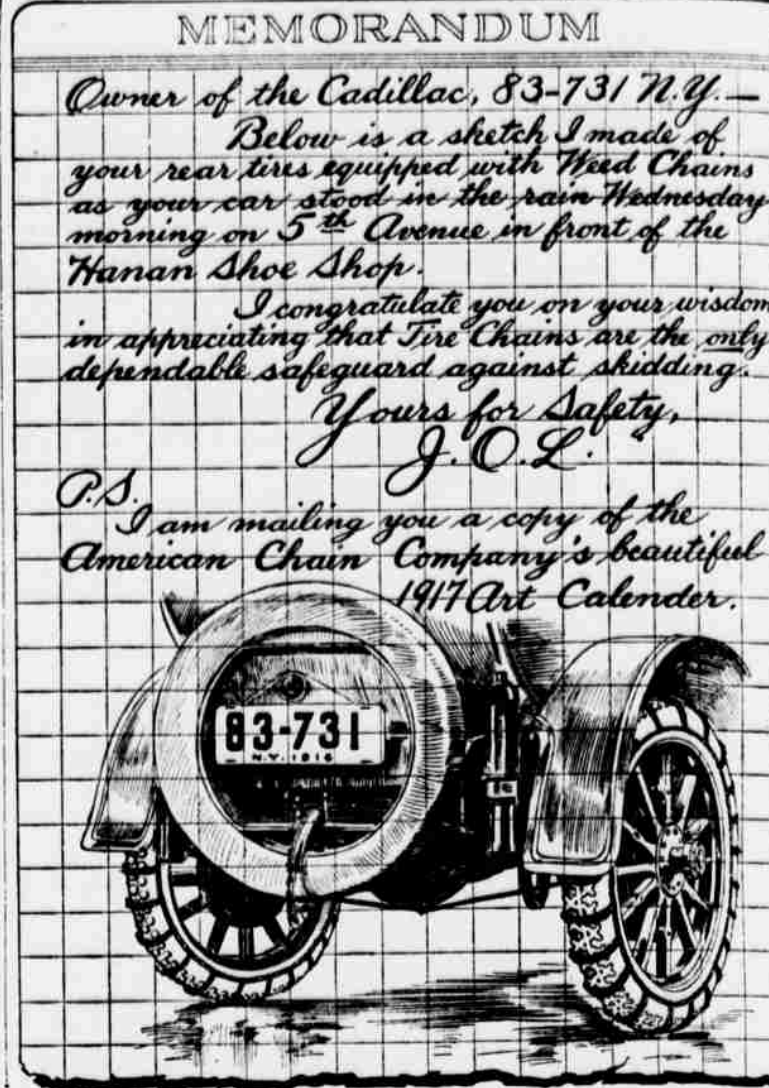 MEMORANDUM
Owner of the Cadillac, 83-731 N.Y.—
Below is a sketch I made of
your rear tires equipped with Weed Chains
as your car stood in the rain Wednesday
morning on 5th Avenue in front of the
Hanan Shoe Shop.
I congratulate you on your wisdom
in appreciating that Tire Chains are the only
dependable safeguard against skidding.
Yours for Safety,
J. O. L.
P.S.
I am mailing you a copy of the
American Chain Company's beautiful
1917 Art Calender.
83-731
N.Y. 1916